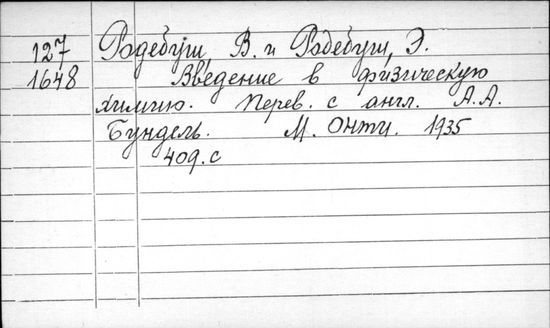 127 Родебуш, В. и Родебуш, Э.
1648 Введение в физическую
химию. Перев. с англ. А.А.
Бундель. М. ОНТИ. 1935
409.с